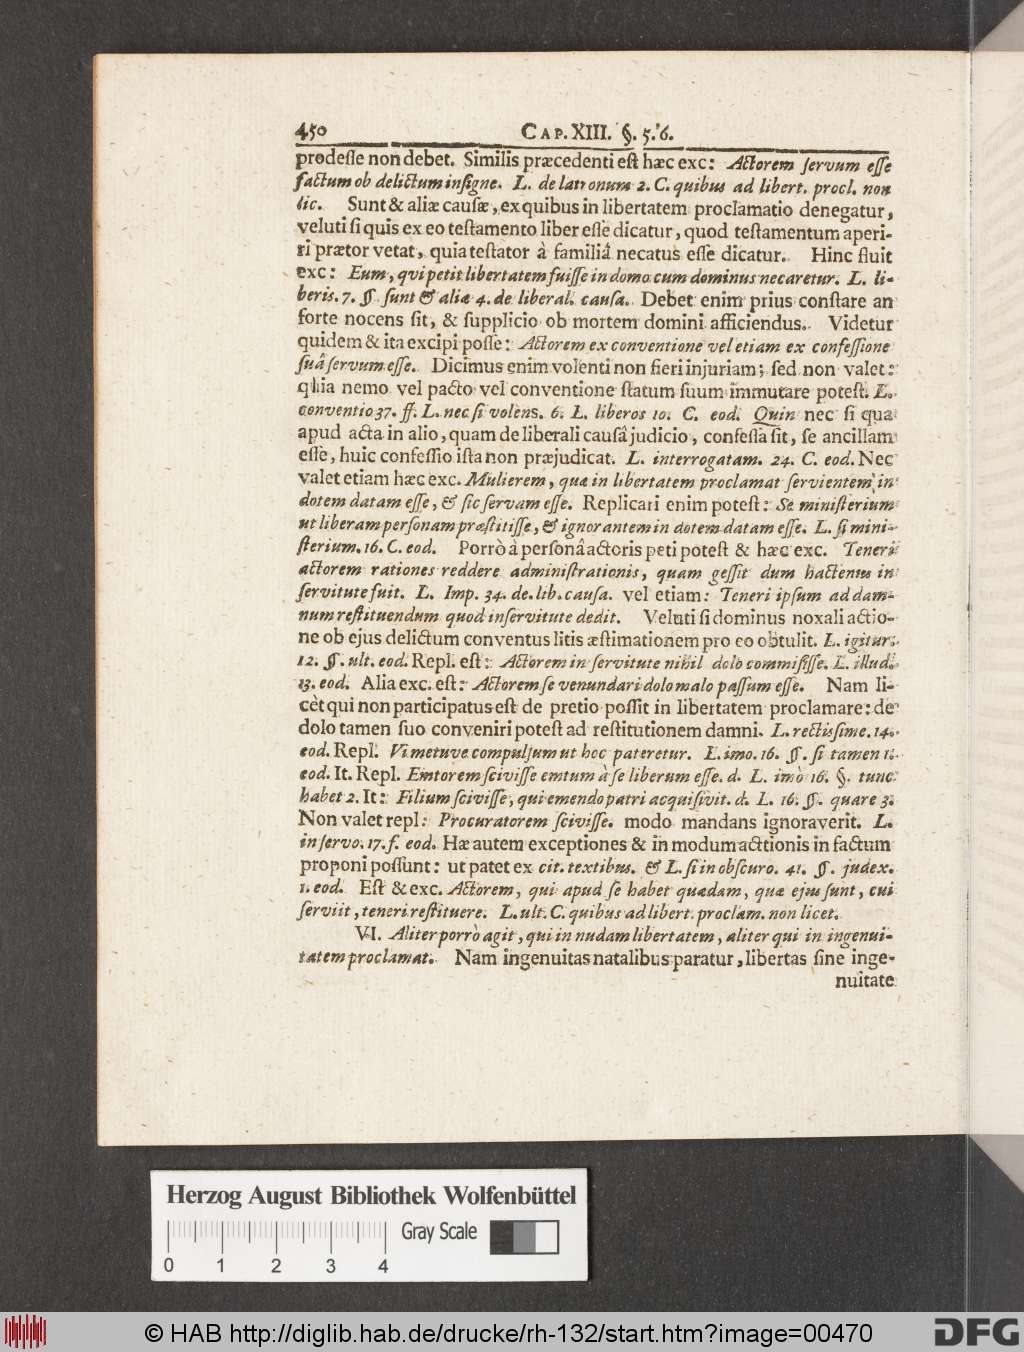 450 CAP. XIII. §. 5. 6.
prodeſſe non debet. Similis præcedenti eſt hæc exc: Actorem ſervum eſſe
factum ob delictum inſigne. L. de latronum 2. C. quibus ad libert. procl. non
lic. Sunt & aliæ cauſæ, ex quibus in libertatem proclamatio denegatur,
veluti ſi quis ex eo teſtamento liber eſſe dicatur, quod teſtamentum aperi-
ri prætor vetat, quia teſtator à familiâ necatus eſſe dicatur. Hinc fluit
exc: Eum, qvi petit libertatem fuiſſe in domo cum dominus necaretur. L. li-
beris. 7. §. ſunt & aliæ 4. de liberal. cauſa. Debet enim prius conſtare an
forte nocens ſit, & ſupplicio ob mortem domini afficiendus. Videtur
quidem & ita excipi poſſe: Actorem ex conventione vel etiam ex confeſſione
ſuâ ſervum eſſe. Dicimus enim volenti non fieri injuriam; ſed non valet:
quia nemo vel pacto vel conventione ſtatum ſuum immutare poteſt. L.
conventio 37. ff. L. nec ſi volens. 6. L. liberos 10. C. eod. Quin nec ſi qua
apud acta in alio, quam de liberali cauſâ judicio, confeſſa ſit, ſe ancillam
eſſe, huic confeſſio iſta non præjudicat. L. interrogatam. 24. C. eod. Nec
valet etiam hæc exc. Mulierem, quæ in libertatem proclamat ſervientem in
dotem datam eſſe, & ſic ſervam eſſe. Replicari enim poteſt: Se miniſterium
ut liberam perſonam præſtitiſſe, & ignorantem in dotem datam eſſe. L. ſi mini-
ſterium. 16. C. eod. Porrò à perſonâ actoris peti poteſt & hæc exc. Teneri
actorem rationes reddere adminiſtrationis, quam geſſit dum hactenus in
ſervitute fuit. L. Imp. 34. de. lib. cauſa. vel etiam: Teneri ipſum ad dam-
num reſtituendum quod in ſervitute dedit. Veluti ſi dominus noxali actio-
ne ob ejus delictum conventus litis æſtimationem pro eo obtulit. L. igitur.
12. §. ult. eod. Repl. eſt: Actorem in ſervitute nihil dolo commiſiſſe. L. illud.
13. eod. Alia exc. eſt: Actorem ſe venundari dolo malo paſſum eſſe. Nam li-
cèt qui non participatus eſt de pretio poſſit in libertatem proclamare: de
dolo tamen ſuo conveniri poteſt ad reſtitutionem damni. L. rectiſſime. 14.
eod. Repl. Vi metuve compulſum ut hoc pateretur. L. imo. 16. §. ſi tamen 1.
eod. It. Repl. Emtorem ſciviſſe emtum à ſe liberum eſſe. d. L. imò 16. §. tunc
habet 2. It: Filium ſciviſſe, qui emendo patri acquiſivit. d. L. 16. §. quare 3.
Non valet repl: Procuratorem ſciviſſe. modo mandans ignoraverit. L.
in ſervo. 17. f. eod. Hæ autem exceptiones & in modum actionis in factum
proponi poſſunt: ut patet ex cit. textibus. & L. ſi in obſcuro. 41. §. judex.
1. eod. Eſt & exc. Actorem, qui apud ſe habet quædam, quæ ejus ſunt, cui
ſerviit, teneri reſtituere. L. ult. C. quibus ad libert. proclam. non licet.
VI. Aliter porrò agit, qui in nudam libertatem, aliter qui in ingenui-
tatem proclamat. Nam ingenuitas natalibus paratur, libertas ſine inge-
nuitate
Herzog August Bibliothek Wolfenbüttel
Gray Scale
0 1 2 3 4
© HAB http://diglib.hab.de/drucke/rh-132/start.htm?image=00470
DFG